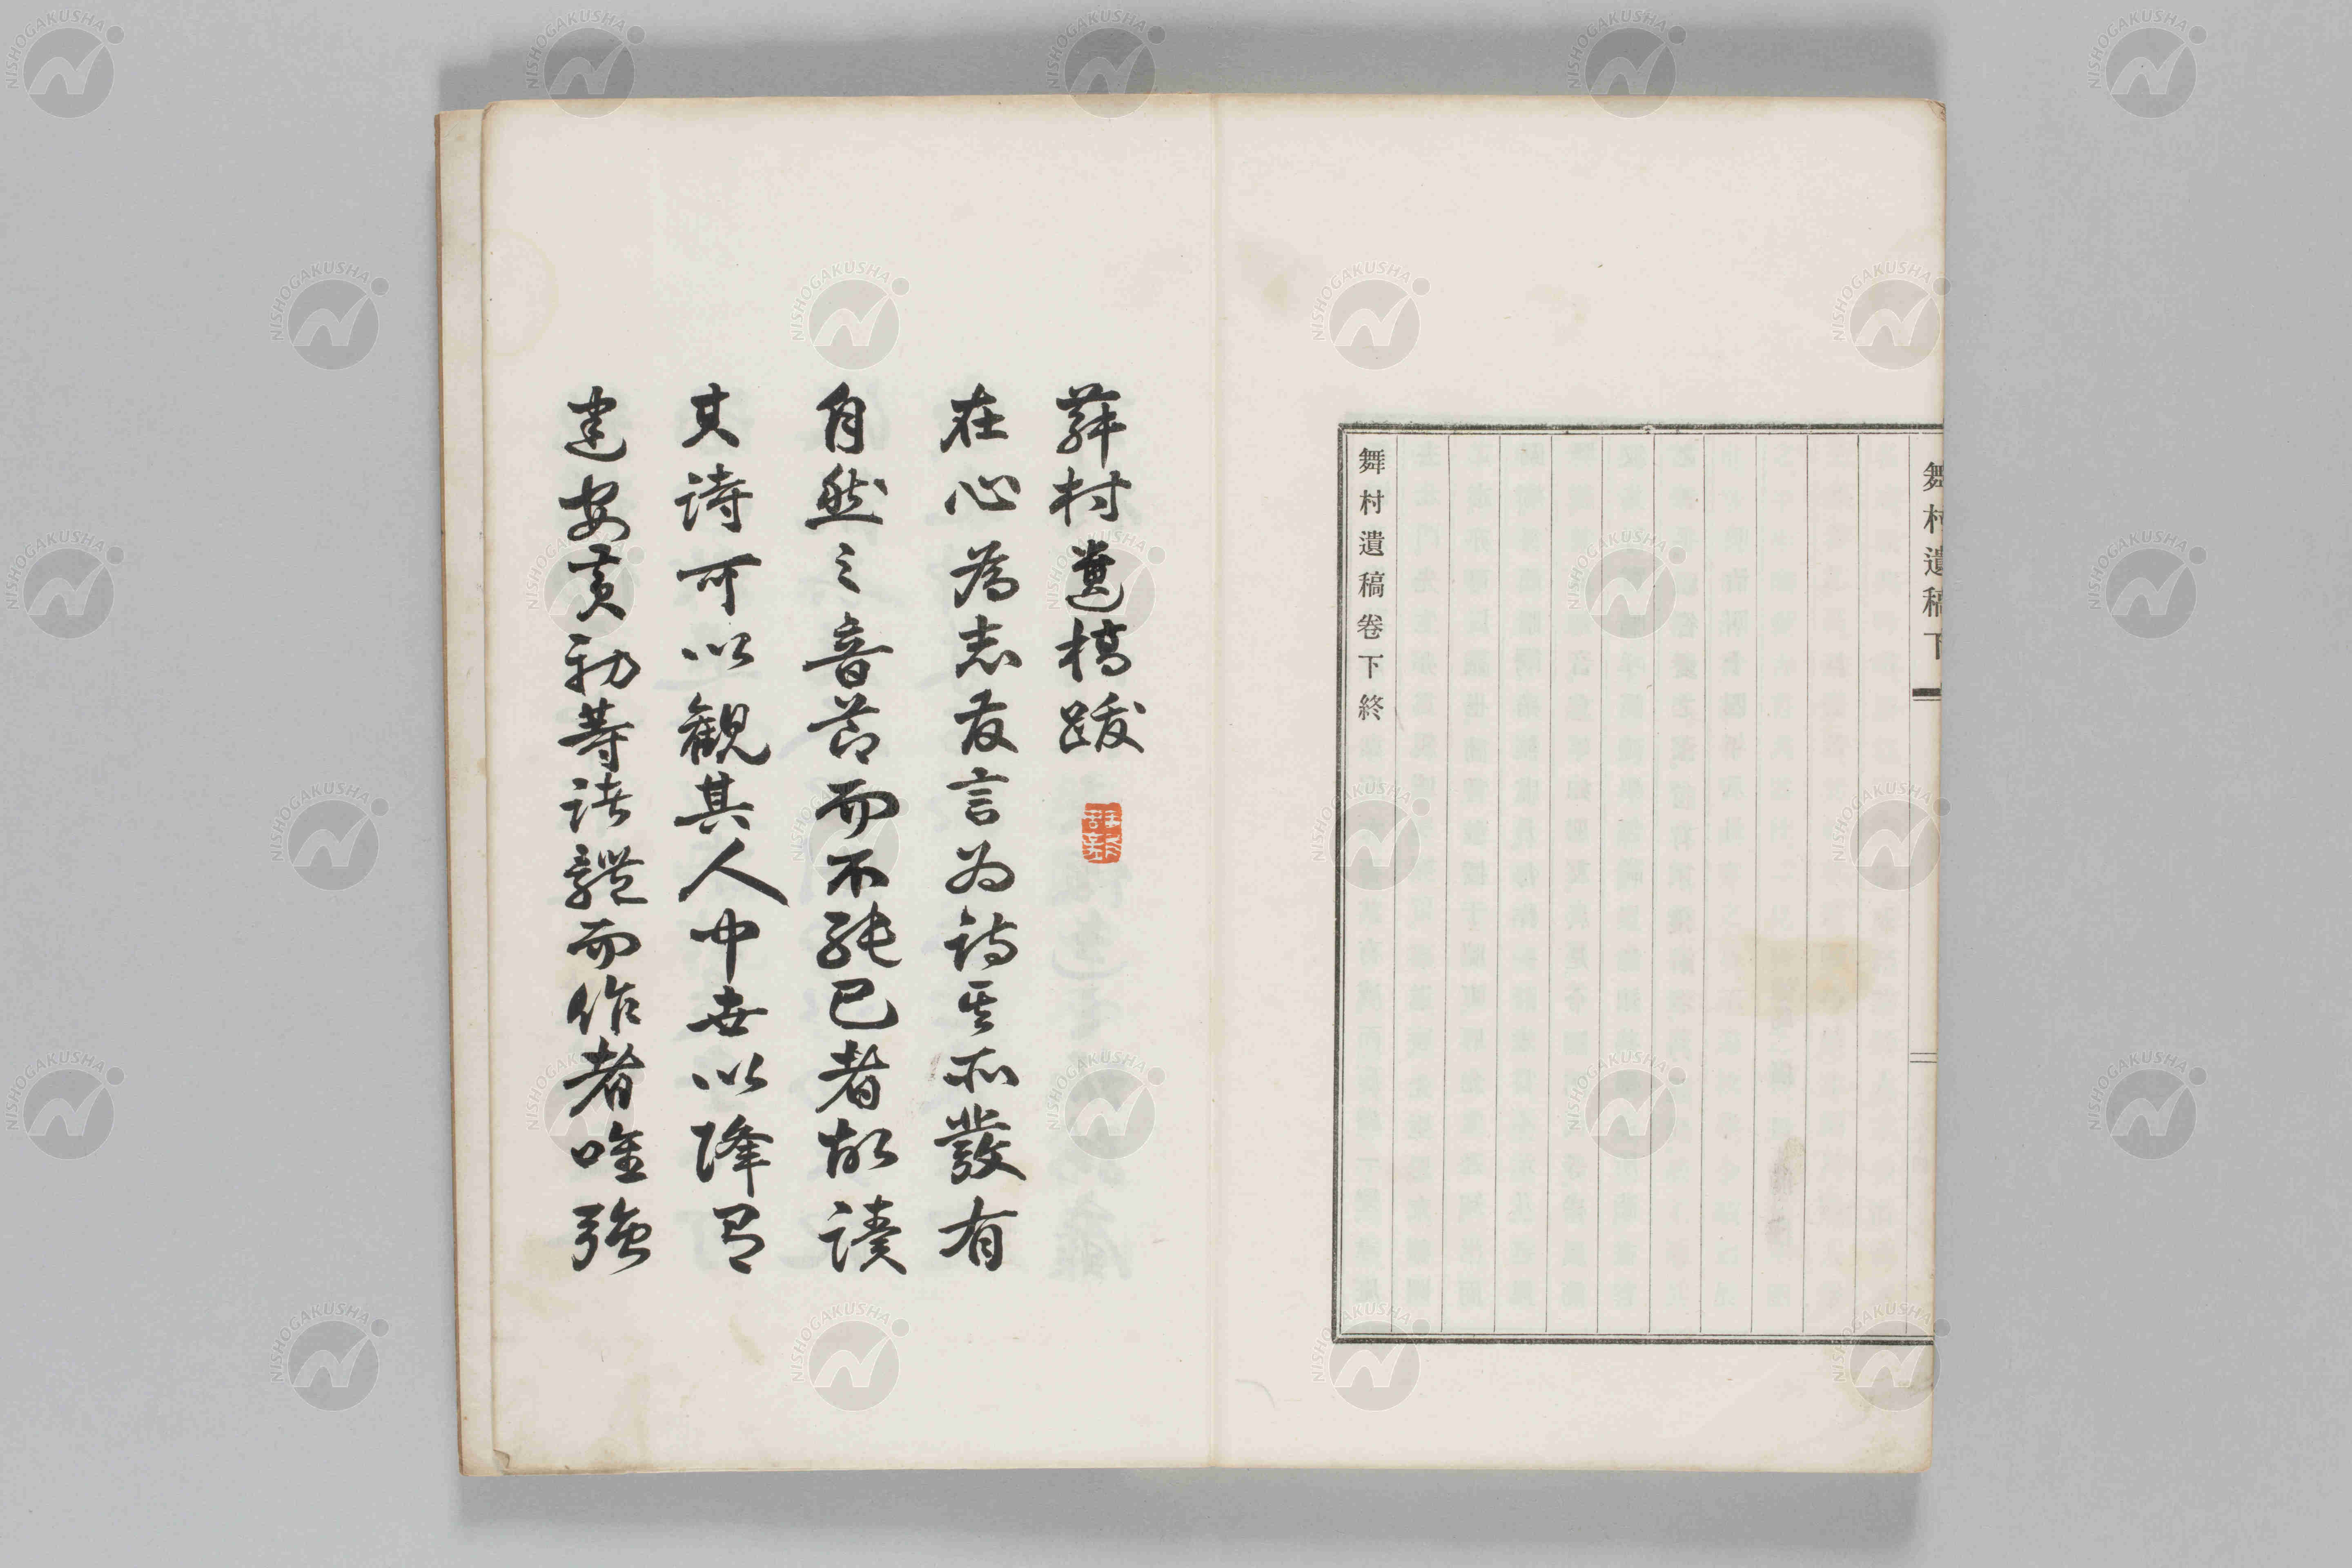 舞村遺稿下
舞村遺稿卷下終
舞村遺稿跋
在心為志發言為詩其所發有
自然之音節而不能已者故讀
其詩可以觀其人中世以降有
建安黄初等諸體而作者唯強
NISHOGAKUSHA